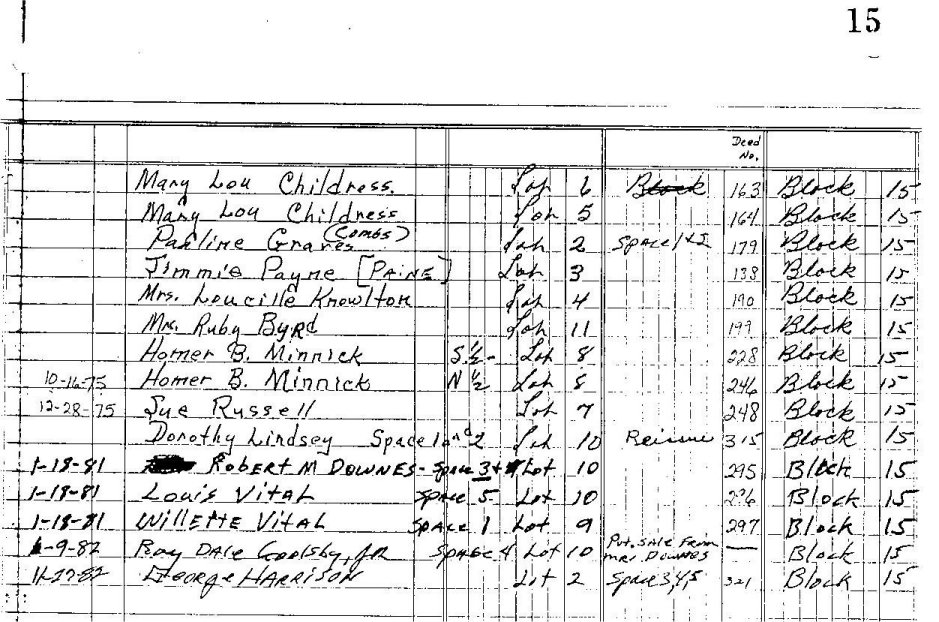 15
Deed No.
Mary Lou Childress. Lot 6 Block 163 Block 15
Mary Lou Childress Lot 5 164 Block 15
Pauline Graves (Combs) Lot 2 Space 1+2 179 Block 15
Jimmie Payne [PAINE] Lot 3 138 Block 15
Mrs. Loucille Knowlton Lot 4 190 Block 15
Mrs. Ruby Byrd Lot 11 199 Block 15
Homer B. Minnick S 1/2 - Lot 8 228 Block 15
10-16-75 Homer B. Minnick N 1/2 Lot 8 246 Block 15
12-28-75 Sue Russell Lot 7 248 Block 15
Dorothy Lindsey Space 1 and 2 Lot 10 315 Block 15
1-18-81 ROBERT M DOWNES - Space 3+4 Lot 10 295 Block 15
1-18-81 LOUIS VITAL Space 5 Lot 10 296 Block 15
1-18-81 WILLETTE VITAL Space 1 Lot 9 297 Block 15
6-9-82 Roy DALE Goolsby, JR Space 4 Lot 10 Pvt. Sale From Mr. DOWNES — Block 15
11-27-82 GEORGE HARRISON Lot 2 Space 3,4,5 321 Block 15